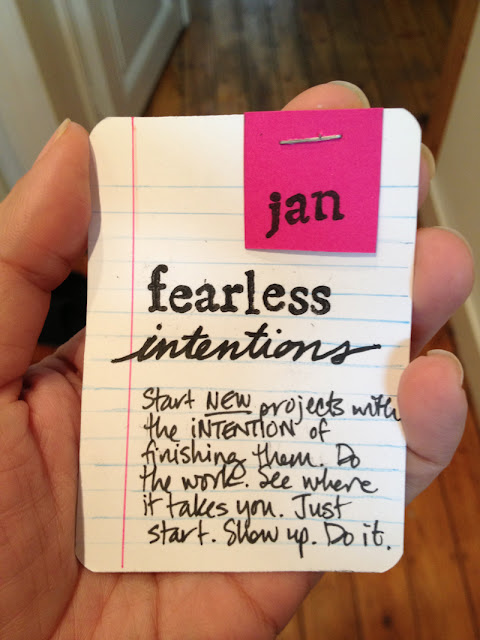 jan
fearless
intentions
Start NEW projects with
the iNTENTION of
finishing them. Do
the work. See where
it takes you. Just
start. Show up. Do it.